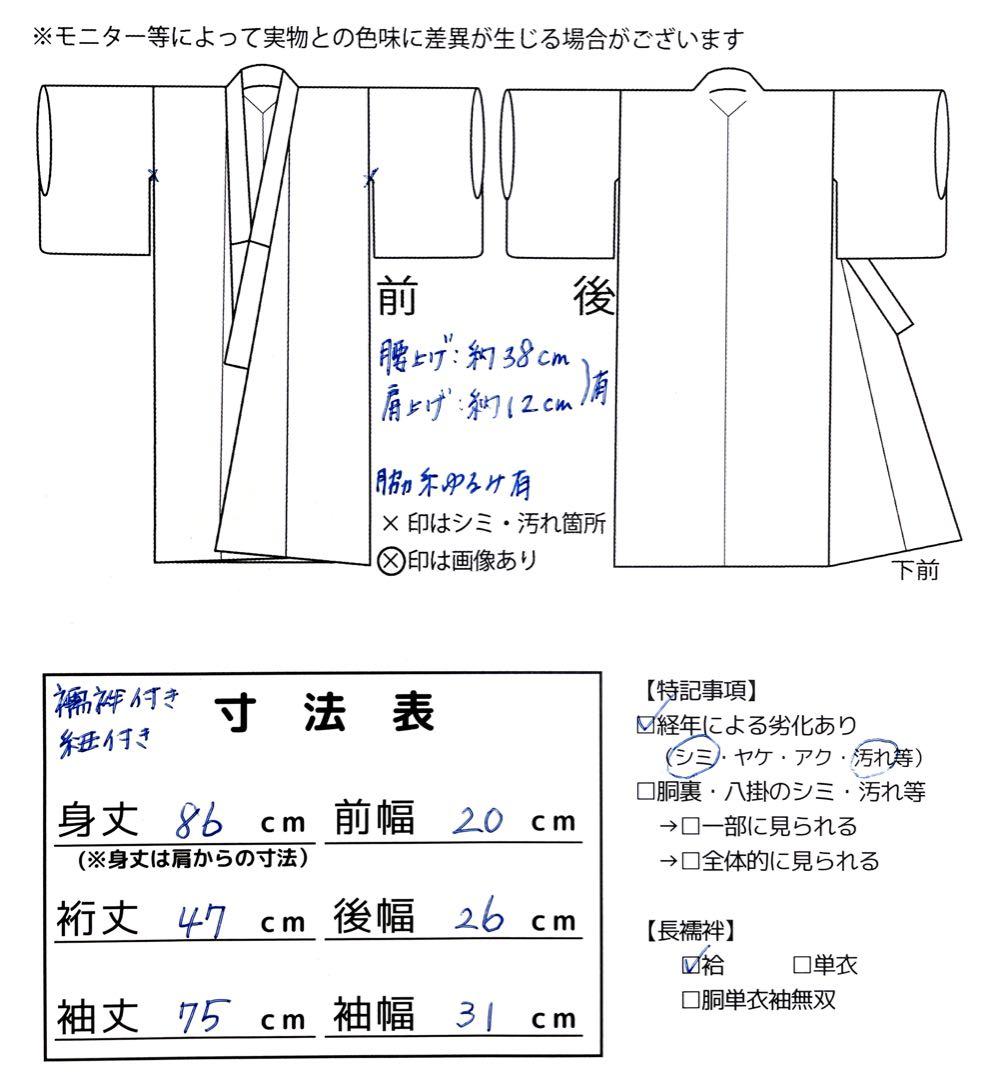 ※モニター等によって実物との色味に差異が生じる場合がございます
前
後
腰上げ:約38cm
肩上げ:約12cm
有
脇糸ゆるみ有
×印はシミ・汚れ箇所
⊗印は画像あり
下前
襦袢付き
紐付き
寸法表
身丈 86 cm
前幅 20 cm
(※身丈は肩からの寸法)
裄丈 47 cm
後幅 26 cm
袖丈 75 cm
袖幅 31 cm
【特記事項】
☑経年による劣化あり
(シミ・ヤケ・アク・汚れ等)
□胴裏・八掛のシミ・汚れ等
→□一部に見られる
→□全体的に見られる
【長襦袢】
☑袷 □単衣
□胴単衣袖無双